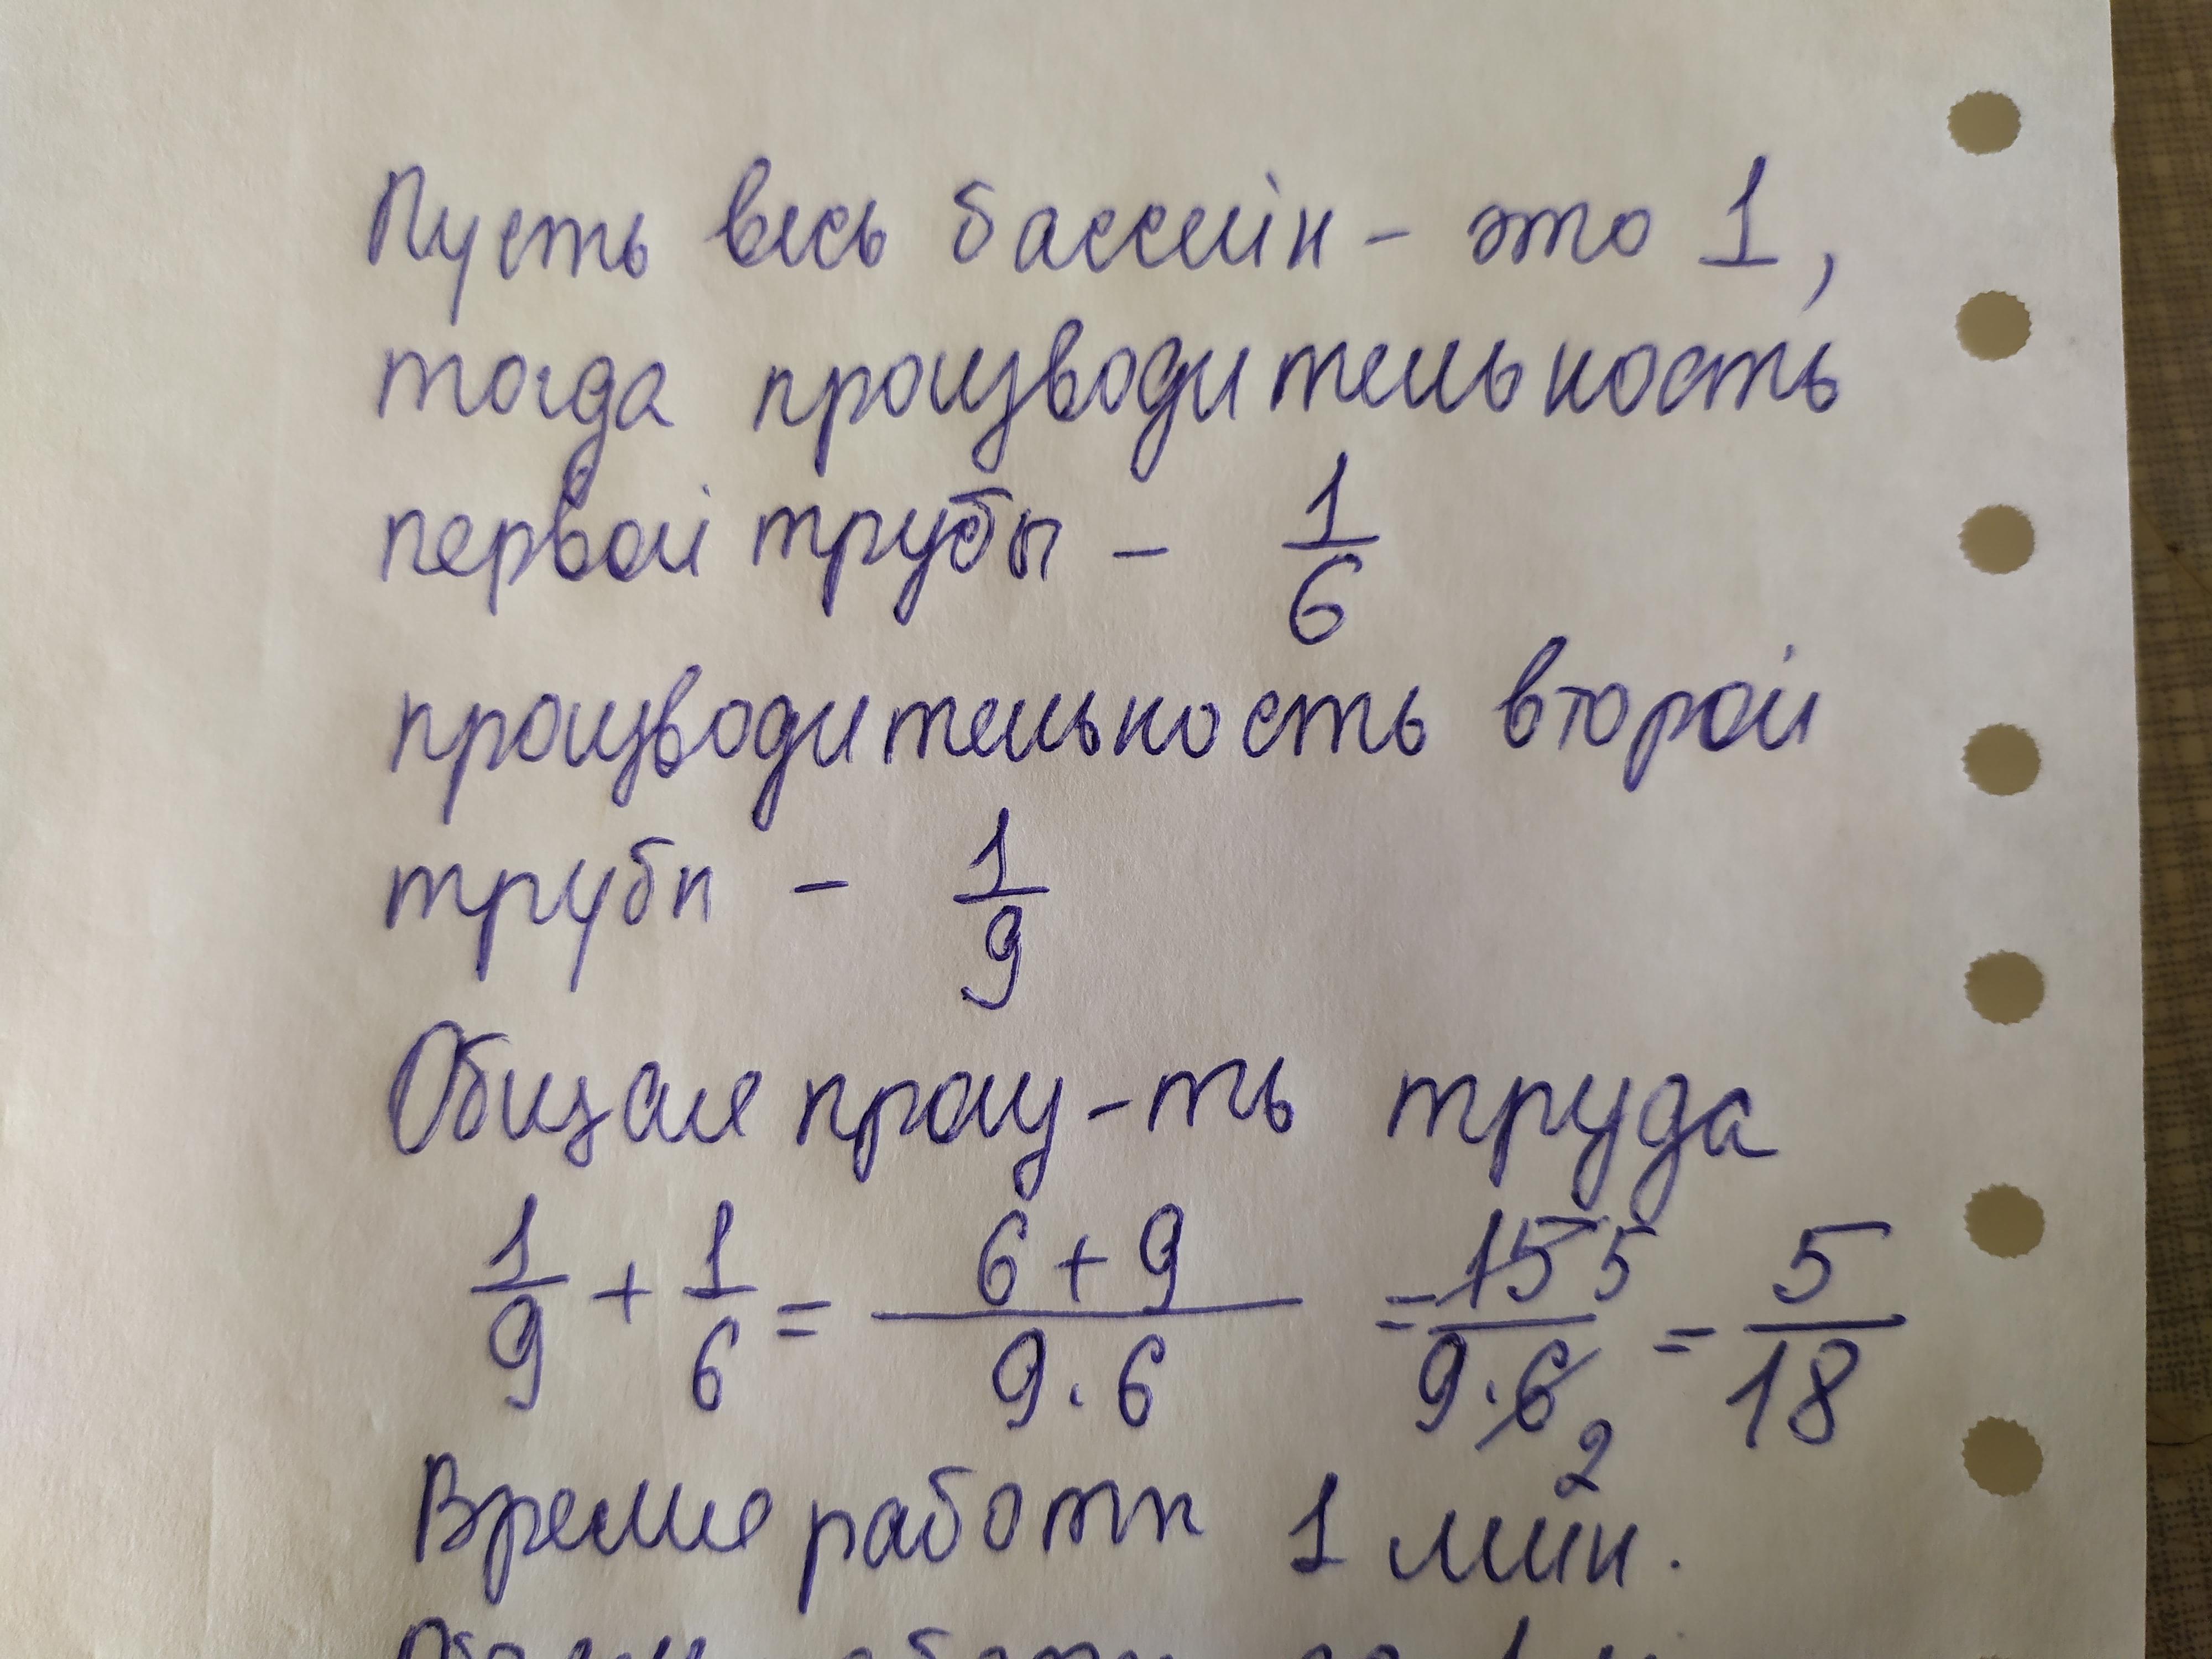 Пусть весь бассейн - это 1,
тогда производительность
первой трубы - 1/6
производительность второй
трубы - 1/9
Общая произ-ть труда
1/9 + 1/6 = (6 + 9)/(9 · 6) = 15 5/(9 · 6 2) = 5/18
Время работы 1 мин.